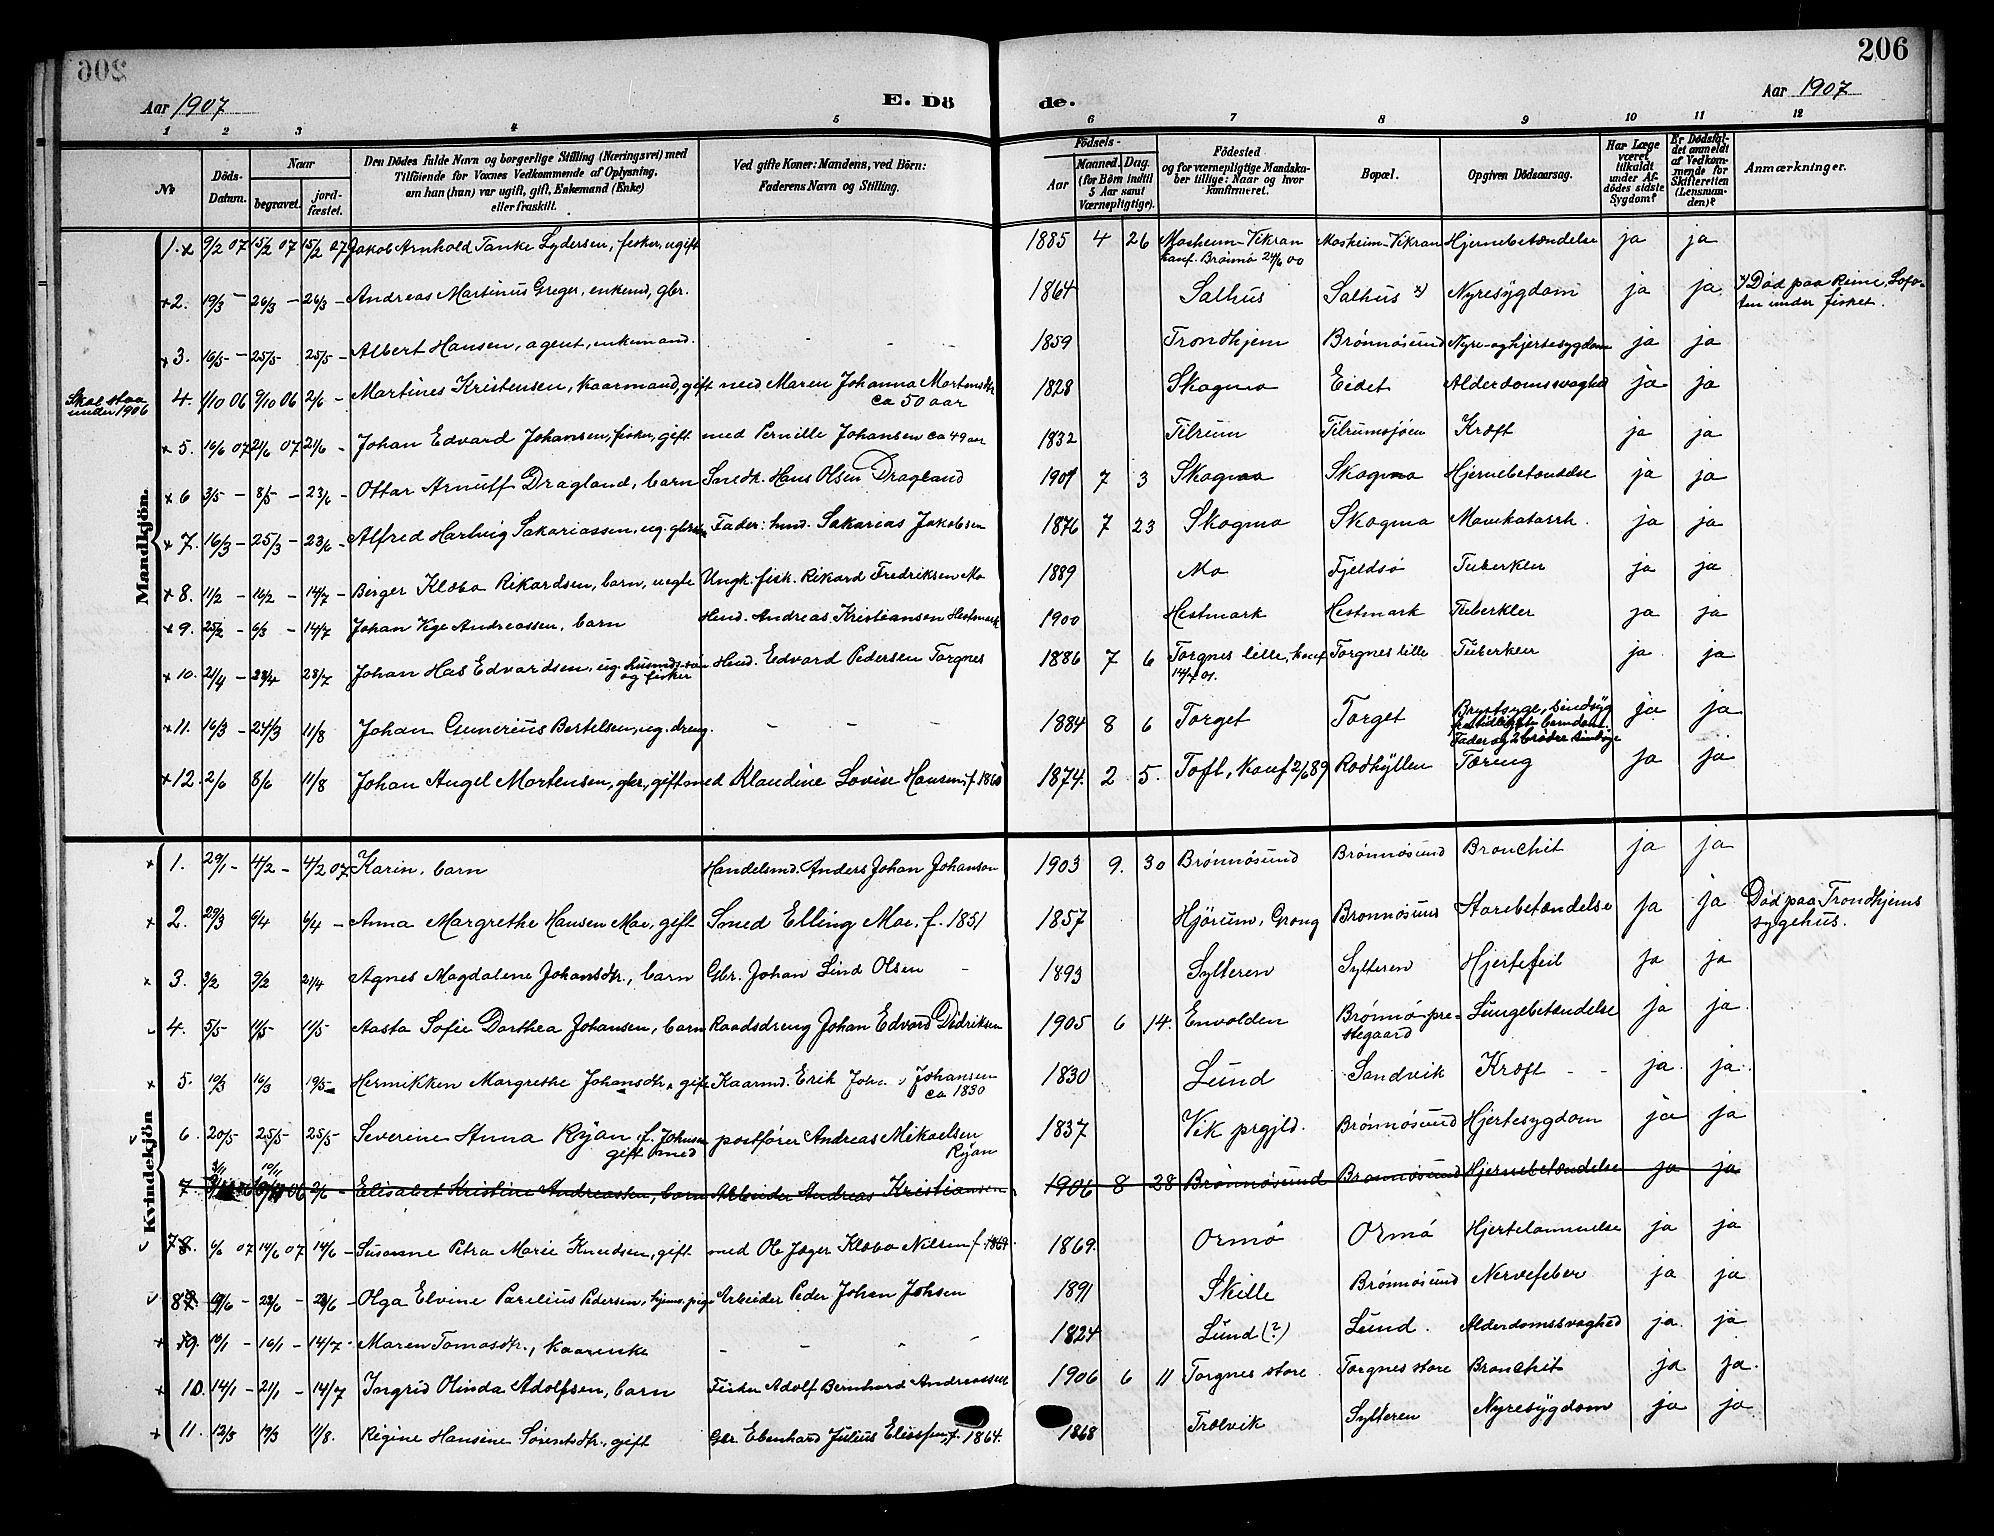 206
Aar 1907
E. Dö
de.
Aar 1907
1 2 3 4 5 6 7 8 9 10 11 12
No
Döds-Datum.
Naar
begravet.
jord-fæstet.
Den Dödes fulde Navn og borgerlige Stilling (Næringsvei) med
Tilföiende for Voxnes Vedkommende af Oplysning,
om han (hun) var ugift, gift, Enkemand (Enke)
eller fraskilt.
Ved gifte Koner: Mandens, ved Börn:
Faderens Navn og Stilling.
Födsels-
Aar
Maaned. Dag.
(for Börn indtil
5 Aar samt
Værnepligtige).
Födested
og for værnepligtige Mandska-
ber tillige: Naar og hvor
konfirmeret.
Bopæl.
Opgiven Dödsaarsag.
Har Læge
været
tilkaldt
under Af-
dödes sidste
Sygdom?
Er Dödsfal-
det anmeldt
af Vedkom-
mende for
Skifteretten
(Lensman-
den)?
Anmærkninger.
Mandkjön.
1. x 9/2 07 15/2 07 15/2 07 Jakob Arnhold Tanke Lydersen, fisker, ugift 1885 4 26 Mosheim-Vikran Mosheim-Vikran Hjernebetændelse ja ja
konf. Brönnö 24/6 00
x 2. 19/3 - 26/3 - 26/3 - Andreas Martinus Greger, enkemd, gbr. 1864 Salhus Salhus x) Nyresygdom ja ja x) Död paa Reine, Lofo-
ten under fisket.
x 3. 16/5 - 25/5 - 25/5 - Albert Hansen, agent, enkemand. - - - 1859 Trondhjem Brønnøsund Nyre-og hjertesygdom ja ja
Skal staa
under 1906
4. 1/10 06 9/10 06 2/6 - Martines Kristensen, kaarmand, gift med Maren Johanna Mortensdtr 1828 Skogmo Eidet Alderdomssvaghed ja ja
ca 50 aar
x 5. 16/6 07 21/6 07 21/6 - Johan Edvard Johansen, fisker, gift med Pernille Johansen ca 49 aar 1832 Tilrum Tilrumsjöen Kræft ja ja
x 6 3/5 - 8/5 - 23/6 - Ottar Arnulf Dragland, barn Smedk. Hans Olsen Dragland 1901 7 3 Skogmo Skogmo Hjernebetændelse ja ja
x 7. 16/3 - 25/3 - 23/6 - Alfred Hartvig Sakariassen, ug. Fader: hmd. Sakarias Jakobsen 1876 7 23 Skogmo Skogmo Mavekatarrh. ja ja
x 8. 11/2 - 16/2 - 14/7 - Birger Klæbo Rikardsen, barn, uegte Ungk. fisk. Rikard Fredriksen Mo 1889 Mo Fjeldsø Tuberkler ja ja
x 9. 25/2 - 6/3 - 14/7 Johan Vige Andreassen, barn Hmd. Andreas Kristiansen Hestmark 1900 Hestmark Hestmark Tuberkler ja ja
x 10. 21/4 - 28/4 28/7 Johan Has Edvardsen, ug. husmd.søn Hmd. Edvard Pedersen Torgnes 1886 7 6 Torgnes lille, konf Torgnes lille Tuberkler ja ja
og fisker 14/7 01.
x 11. 16/3 - 24/3 11/8 Johan Gunerius Bertelsen, ug. dreng. - - - 1884 8 6 Torget Torget Brystsyge, sindsyg ja ja
Fader og 2 brødre sindsyge
x 12. 2/6 8/6 11/8 Johan Angel Mortensen, gbr., gift med Klaudine Lovise Hansen, f. 1860 1874. 2 5. Toft, Konf 2/6 89 Rodhyllen Tæring ja ja
Kvindekjön
x 1. 29/1 - 4/2 - 4/2 07 Karin, barn Handelsmd. Anders Johan Johanson 1903 9. 30 Brønnøsund Brønnøsund Bronchit ja ja
x 2. 29/3 6/4 6/4 - Anna Margrethe Hansen Moe, gift Smed Elling Moe, f. 1851 1857 Hjørum, Grong Brønnøsund ja ja Död paa Trondhjems
sygehus.
x 3. 3/2 9/2 21/4 Agnes Magdalene Johansdtr., barn Gbr. Johan Lind Olsen - 1893 Sylteren Sylteren Hjertefeil ja ja
4. 5/5 11/5 11/5 Aasta Sofie Dorthea Johansen, barn Raadsdreng Johan Edvard Didriksen 1905 6 14. Envolden Brønnø pre-
stegaard Lungebetændelse ja ja.
x 5. 10/3 16/3 19/5 - Hennikken Margrethe Johansdtr, gift Kaarmd. Erik Joh. Johansen 1830 Lund Sandvik Kræft - - ja. ja.
ca 1830
v 6. 20/5 25/5 25/5 Severine Anna Ryan f. Johnsen postfører Andreas Mikaelsen 1837 Vik prgjld. Brønnøsund Hjertesygdom ja ja
gift med Ryan
3/11 10/11
7 06 2/6 - Elisabet Kristine Andreassen, barn Arbeider Andreas Kristiansen 1906 8 28 Brønnøsund Brønnøsund Hjernebetændelse ja ja
v 78. 6/6 07 14/6 07 14/6 - Susanne Petra Marie Knudsen, gift med Ole Jæger Klæbo Nilsen f. 1869. 1869. Ormö Ormö Hjertelammelse ja ja
v 89. 19/6 - 28/6 - 28/6 - Olga Elvine Parelius Pedersen, hjems. pige Arbeider Peder Johan Johsen 1891 Skille Brønnøsund Nervefeber ja ja
x 9. 10/1 - 16/1 - 14/7 - Maren Tomasdtr., kaarenke - - - 1824 Lund (?) Lund. Alderdomssvaghed ja. ja
x 10. 14/1 - 21/1 - 14/7 Ingrid Olinda Adolfsen, barn Fisker Adolf Bernhard Andreassen 1906 6 11 Torgnes store. Torgnes store Bronchit ja ja.
x 11. 12/3 19/3 11/8. Regine Hansine Sørensdtr., gift Gbr. Ebenhard Julius Eliassen, f. 1864. 1868 Trælvik Sylteren Nyresygdom ja ja